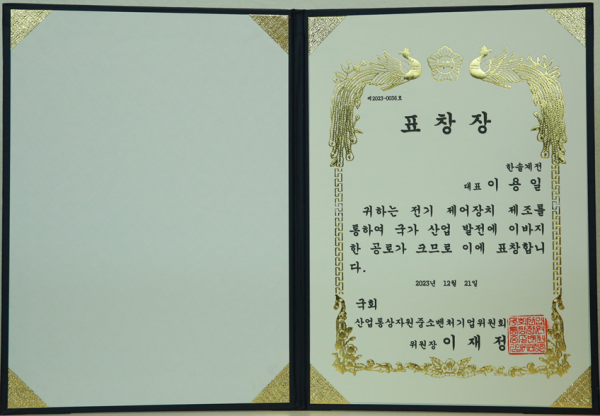 제2023-0038호
표창장
한솔계전
대표 이용일
귀하는 전기 제어장치 제조를
통하여 국가 산업 발전에 이바지
한 공로가 크므로 이에 표창합니
다.
2023년 12월 21일
국회
산업통상자원중소벤처기업위원회
위원장 이재정